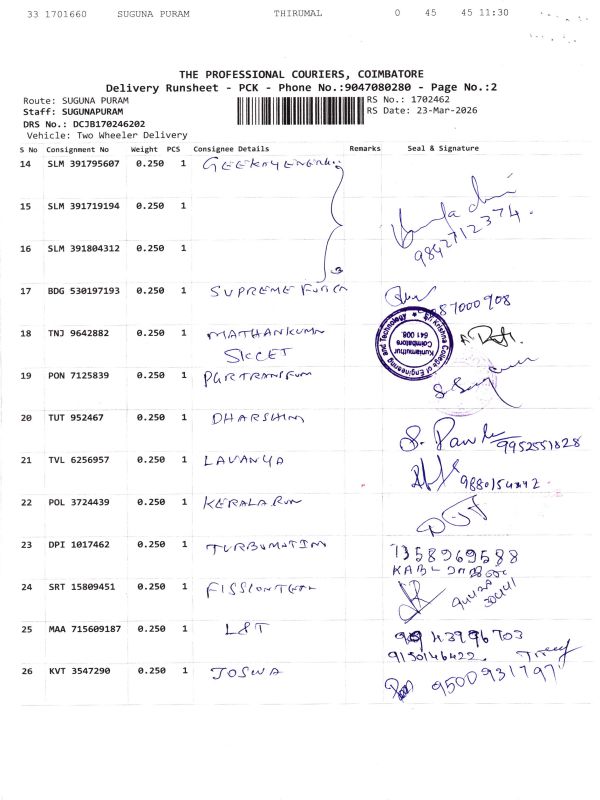 33 1701660 SUGUNA PURAM THIRUMAL 0 45 45 11:30
THE PROFESSIONAL COURIERS, COIMBATORE
Delivery Runsheet - PCK - Phone No.:9047080280 - Page No.:2
Route: SUGUNA PURAM RS No.: 1702462
Staff: SUGUNAPURAM RS Date: 23-Mar-2026
DRS No.: DCJB170246202
Vehicle: Two Wheeler Delivery
S No Consignment No Weight PCS Consignee Details Remarks Seal & Signature
14 SLM 391795607 0.250 1
15 SLM 391719194 0.250 1
9842712374.
16 SLM 391804312 0.250 1
17 BDG 530197193 0.250 1 SUPREME
87000908
18 TNJ 9642882 0.250 1 MATHANKUMA
SKCET
Sri Krishna College of Engineering and Technology
Kuniamuthur
Coimbatore
641 008.
19 PON 7125839 0.250 1
20 TUT 952467 0.250 1 DHARSHINI
9952551828
21 TVL 6256957 0.250 1 LAVANYA
22 POL 3724439 0.250 1 KERALA RUN
23 DPI 1017462 0.250 1
7358969588
24 SRT 15809451 0.250 1
25 MAA 715609187 0.250 1 L&T
9150146422
26 KVT 3547290 0.250 1 JOSWA 9500931797